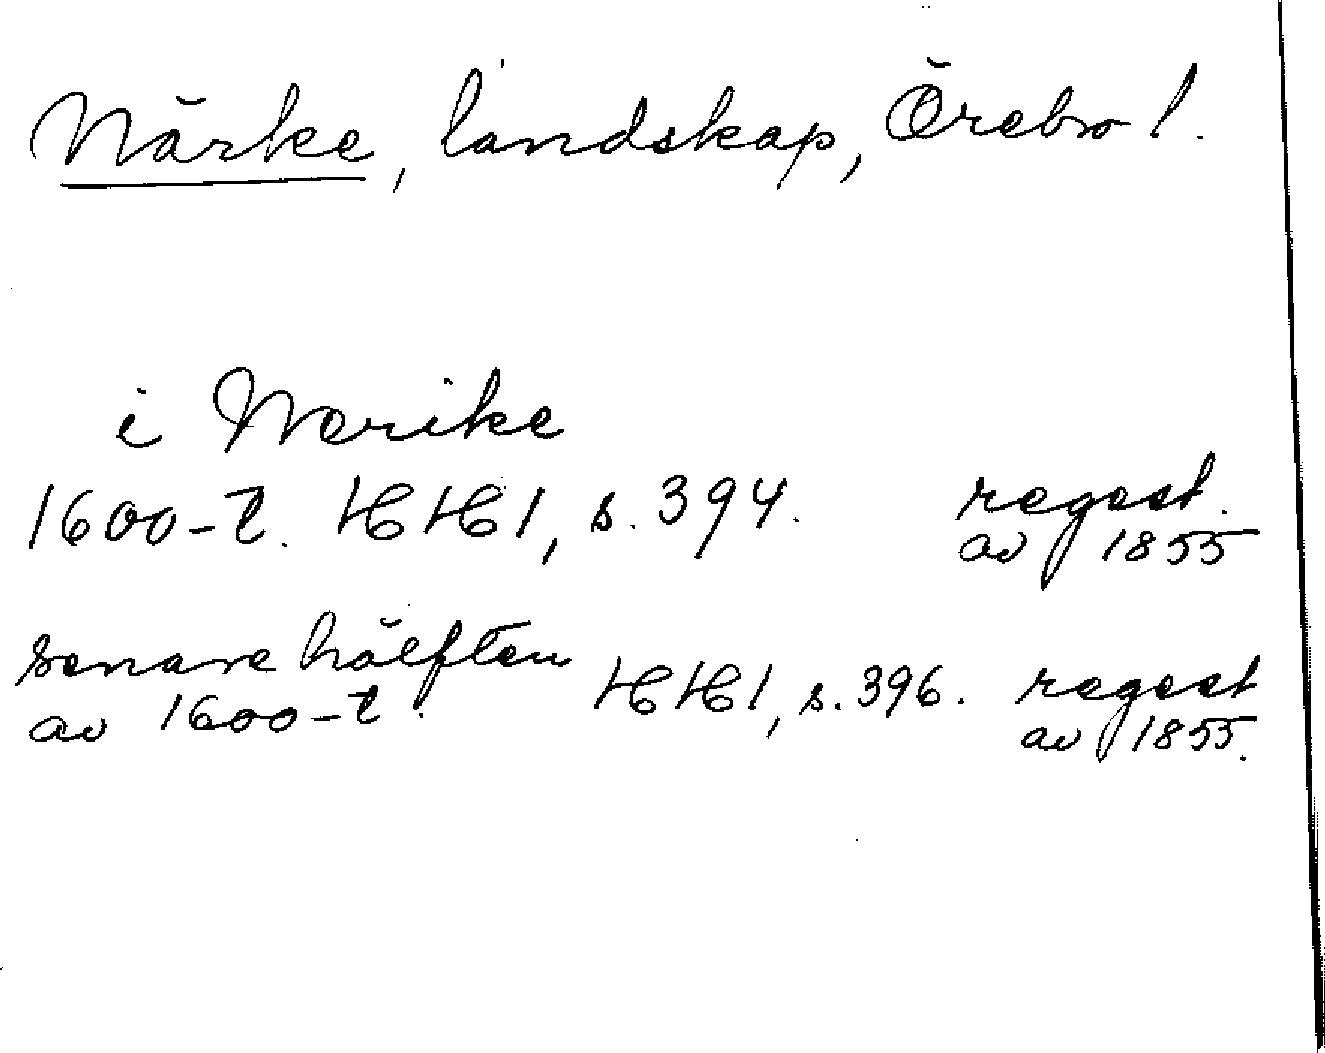 Närke, landskap, Örebro l.
i Nerike
1600-t. HH1, s. 394. regest. av 1855
senare hälften av 1600-t. HH1, s. 396. regest av 1855.